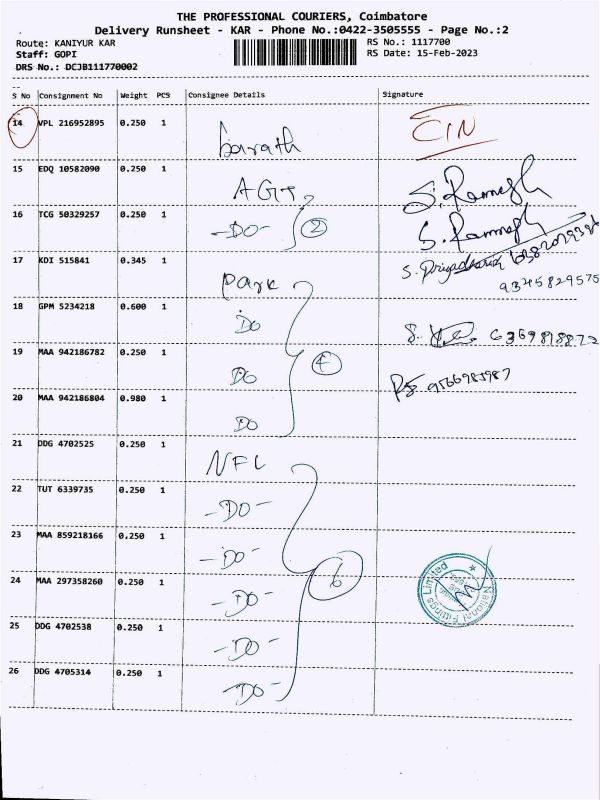 THE PROFESSIONAL COURIERS, Coimbatore
Delivery Runsheet - KAR - Phone No.:0422-3505555 - Page No.:2
Route: KANIYUR KAR RS No.: 1117700
Staff: GOPI RS Date: 15-Feb-2023
DRS No.: DCJB111770002
S No Consignment No Weight PCS Consignee Details Signature
14 VPL 216952895 0.250 1 barath
15 EDQ 10582090 0.250 1 AGT S. Ramesh
16 TCG 50329257 0.250 1 -DO- 2 S. Ramesh
17 KDI 515841 0.345 1 Park
9345829575
18 GPM 5234218 0.600 1 DO
19 MAA 942186782 0.250 1 DO 4
20 MAA 942186804 0.980 1 DO
21 DDG 4702525 0.250 1 NFL
22 TUT 6339735 0.250 1 -DO-
23 MAA 859218166 0.250 1 -DO-
24 MAA 297358260 0.250 1 -DO- 6 National Fittings Limited
25 DDG 4702538 0.250 1 -DO-
26 DDG 4705314 0.250 1 -DO-